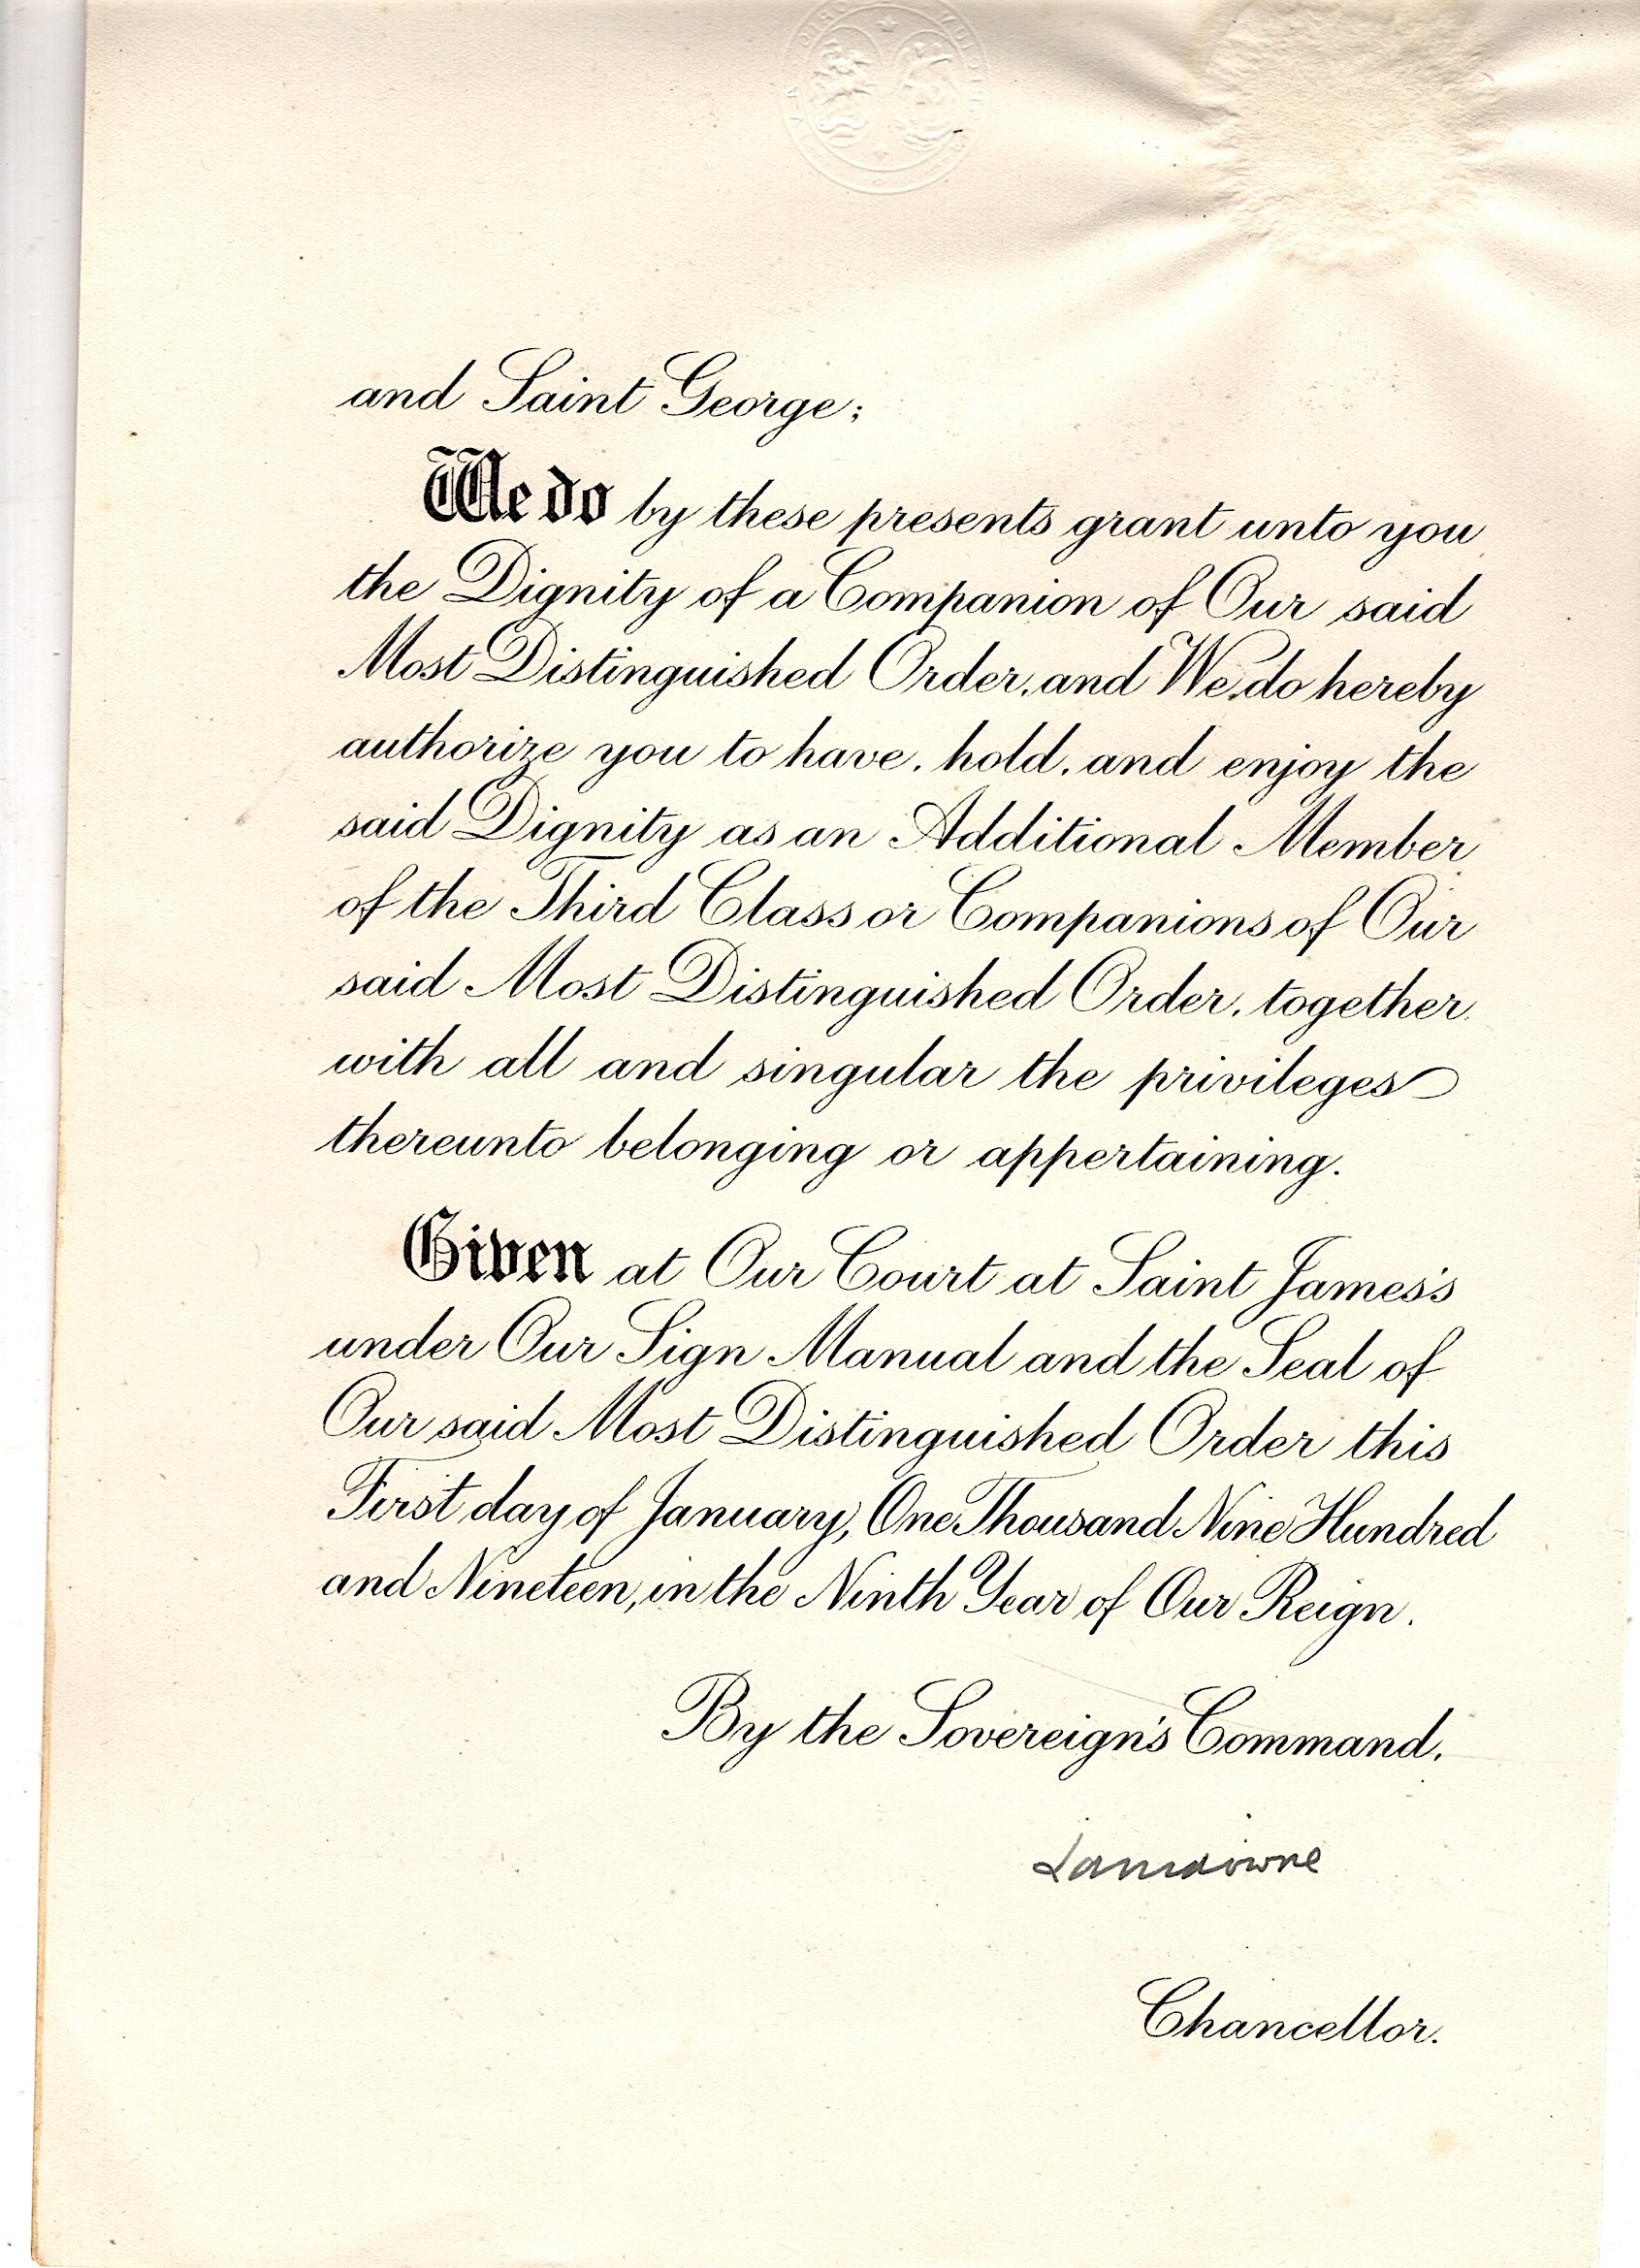 and Saint George;
We do by these presents grant unto you
the Dignity of a Companion of Our said
Most Distinguished Order, and We do hereby
authorize you to have, hold, and enjoy the
said Dignity as an Additional Member
of the Third Class or Companions of Our
said Most Distinguished Order, together
with all and singular the privileges
thereunto belonging or appertaining.
Given at Our Court at Saint James's
under Our Sign Manual and the Seal of
Our said Most Distinguished Order this
First day of January, One Thousand Nine Hundred
and Nineteen, in the Ninth Year of Our Reign.
By the Sovereign's Command.
Lansdowne
Chancellor.